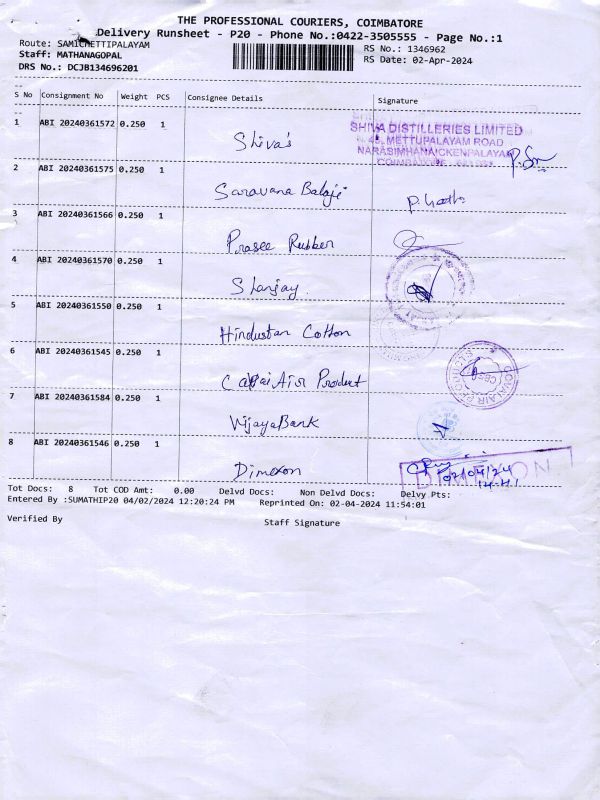 THE PROFESSIONAL COURIERS, COIMBATORE
Delivery Runsheet - P20 - Phone No.:0422-3505555 - Page No.:1
Route: SAMICHETTIPALAYAM
RS No.: 1346962
Staff: MATHANAGOPAL
RS Date: 02-Apr-2024
DRS No.: DCJB134696201
S No Consignment No Weight PCS Consignee Details Signature
1 ABI 20240361572 0.250 1
Shiva's
SHIVA DISTILLERIES LIMITED
METTUPALAYAM ROAD
NARASIMHANAICKENPALAYAM
COIMBATORE
2 ABI 20240361575 0.250 1
Saravana Balaji
3 ABI 20240361566 0.250 1
Prasee Rubber
4 ABI 20240361570 0.250 1
5 ABI 20240361550 0.250 1
Hindustan Cotton
6 ABI 20240361545 0.250 1
Air Product
7 ABI 20240361584 0.250 1
Vijaya Bank
8 ABI 20240361546 0.250 1
Dimexon
02/04/24
14-41
Tot Docs: 8 Tot COD Amt: 0.00 Delvd Docs: Non Delvd Docs: Delvy Pts:
Entered By :SUMATHIP20 04/02/2024 12:20:24 PM Reprinted On: 02-04-2024 11:54:01
Verified By Staff Signature